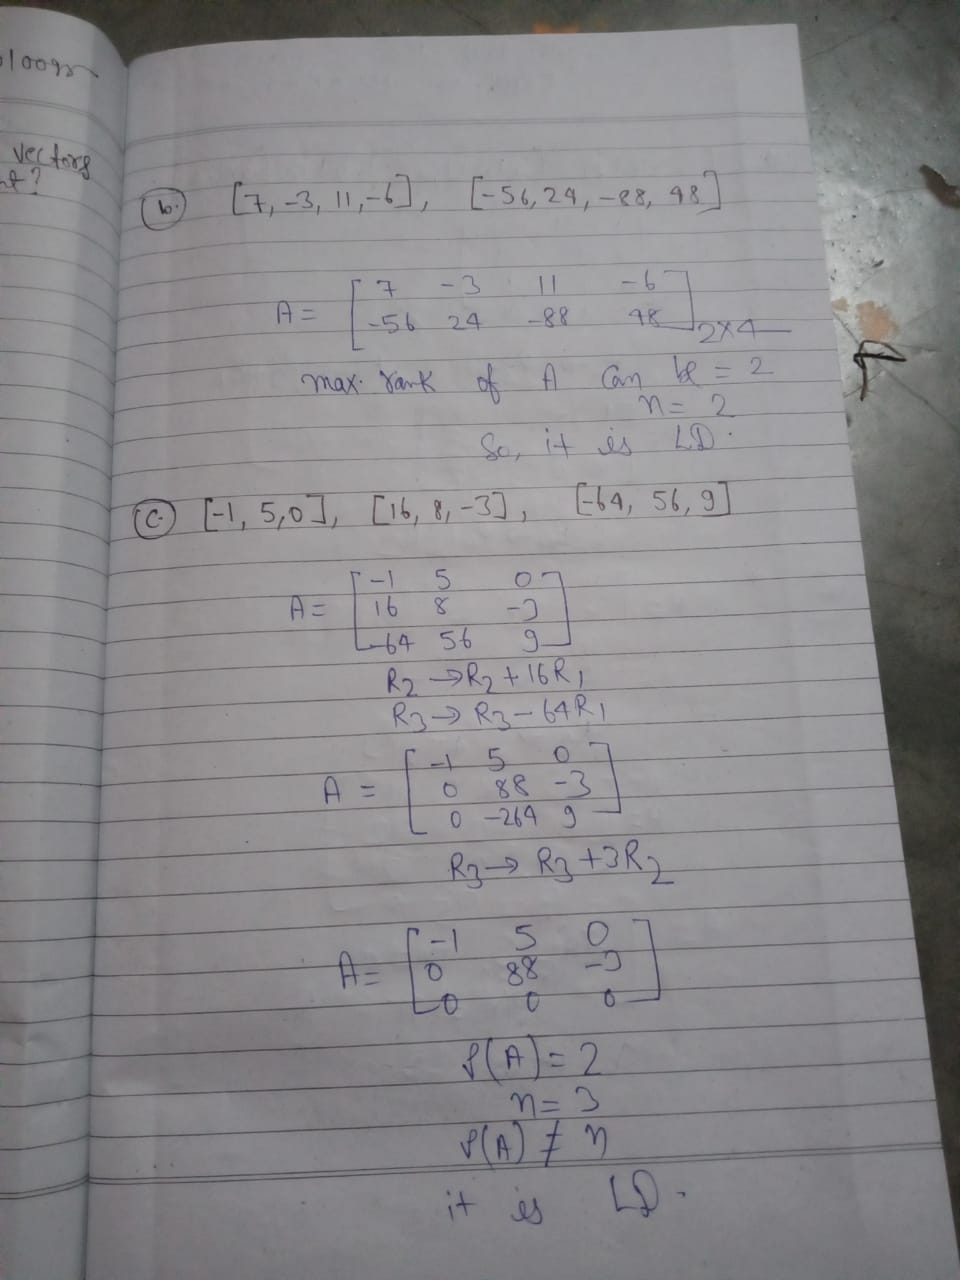 vectors
b. [7, -3, 11, -6], [-56, 24, -88, 48]
A = [ 7 -3 11 -6
-56 24 -88 48 ] 2×4
max. rank of A can be = 2
n = 2
So, it is LD.
c. [-1, 5, 0], [16, 8, -3], [-64, 56, 9]
A = [ -1 5 0
16 8 -3
-64 56 9 ]
R2 → R2 + 16R1
R3 → R3 - 64R1
A = [ -1 5 0
0 88 -3
0 -264 9 ]
R3 → R3 + 3R2
A = [ -1 5 0
0 88 -3
0 0 0 ]
ρ(A) = 2
n = 3
ρ(A) ≠ n
it is LD.